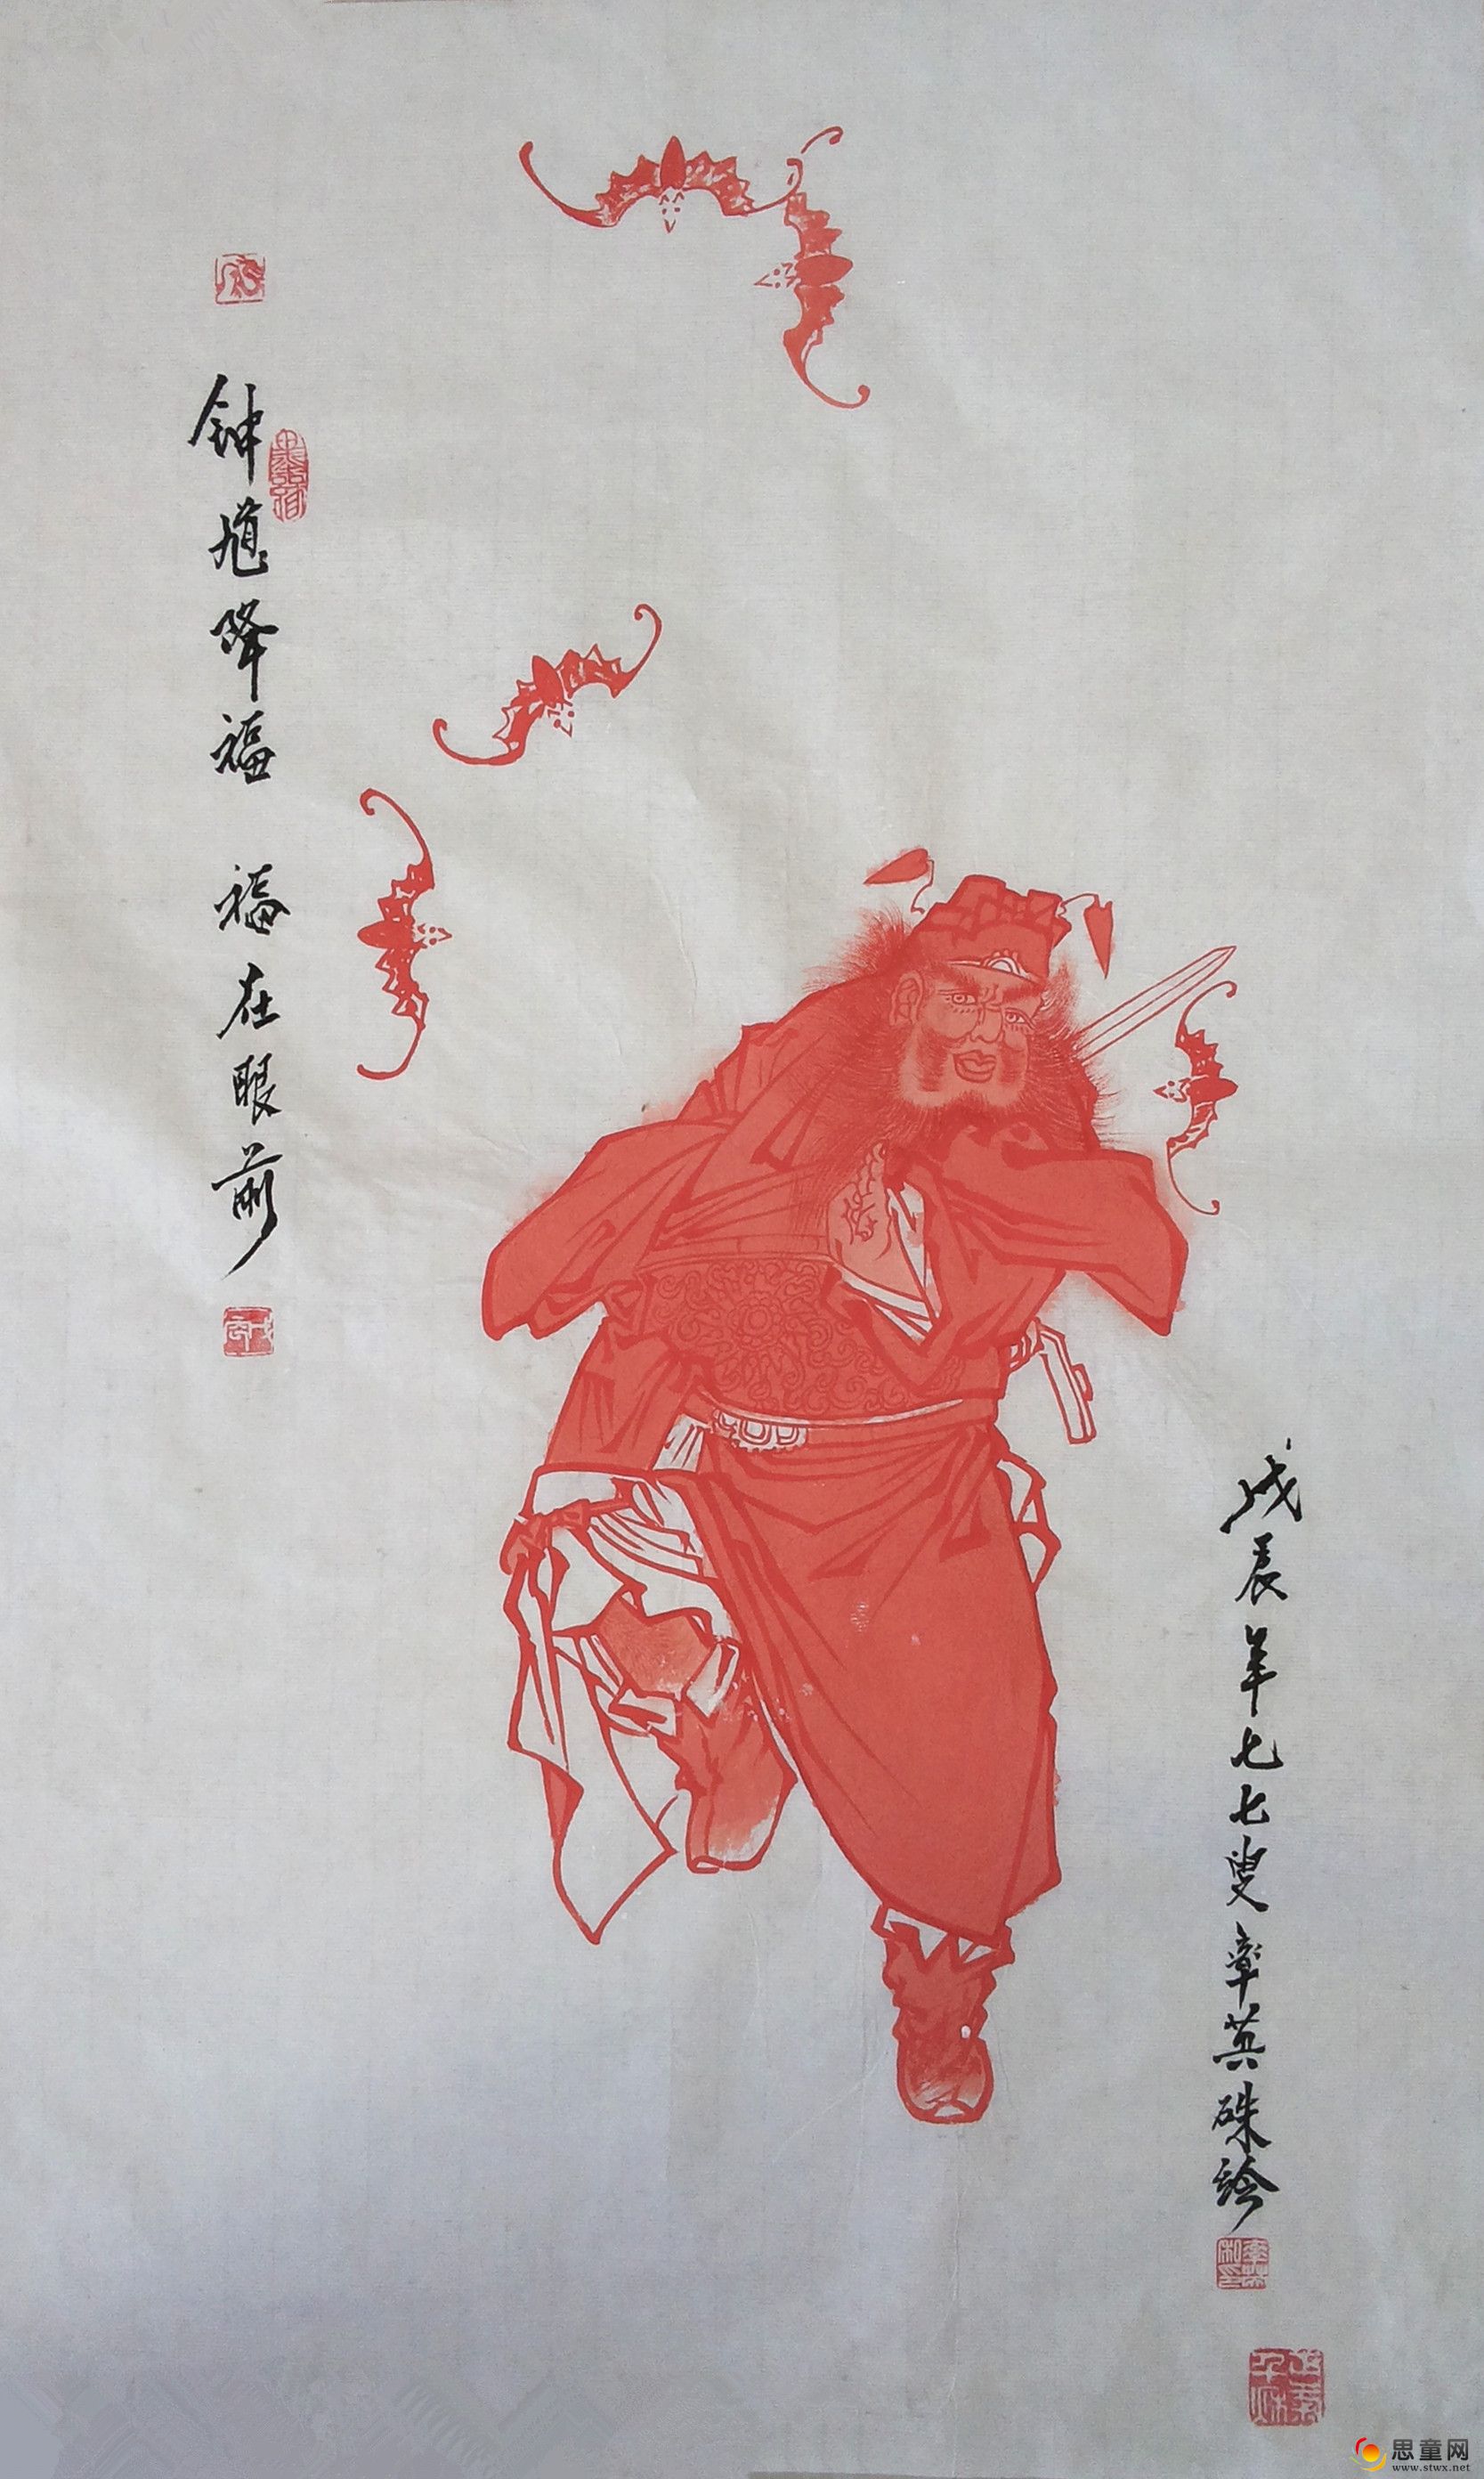 钟馗降福 福在眼前
戊辰年七七叟章英硃绘
思童网
www.stwx.net